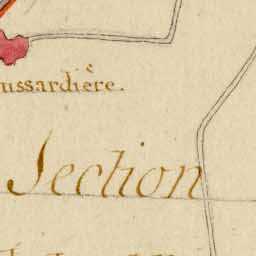 ussardière.
Section